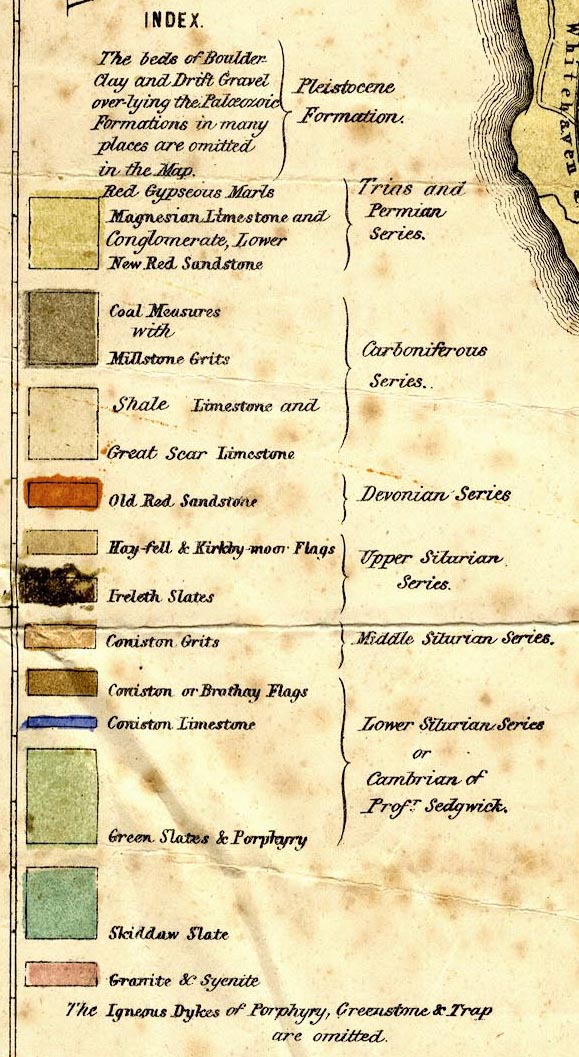 INDEX.
The beds of Boulder
Clay and Drift Gravel
over-lying the Palæozoic
Formations in many
places are omitted
in the Map.
Pleistocene
Formation.
Red Gypseous Marls
Magnesian Limestone and
Conglomerate, Lower
New Red Sandstone
Trias and
Permian
Series.
Coal Measures
with
Millstone Grits
Shale Limestone and
Great Scar Limestone
Carboniferous
Series.
Old Red Sandstone
Devonian Series
Hay-fell & Kirkby-moor Flags
Ireleth Slates
Upper Silurian
Series.
Coniston Grits
Middle Silurian Series.
Coniston or Brathay Flags
Coniston Limestone
Green Slates & Porphyry
Lower Silurian Series
or
Cambrian of
Profr. Sedgwick.
Skiddaw Slate
Granite & Syenite
The Igneous Dykes of Porphyry, Greenstone & Trap
are omitted.
Whitehaven